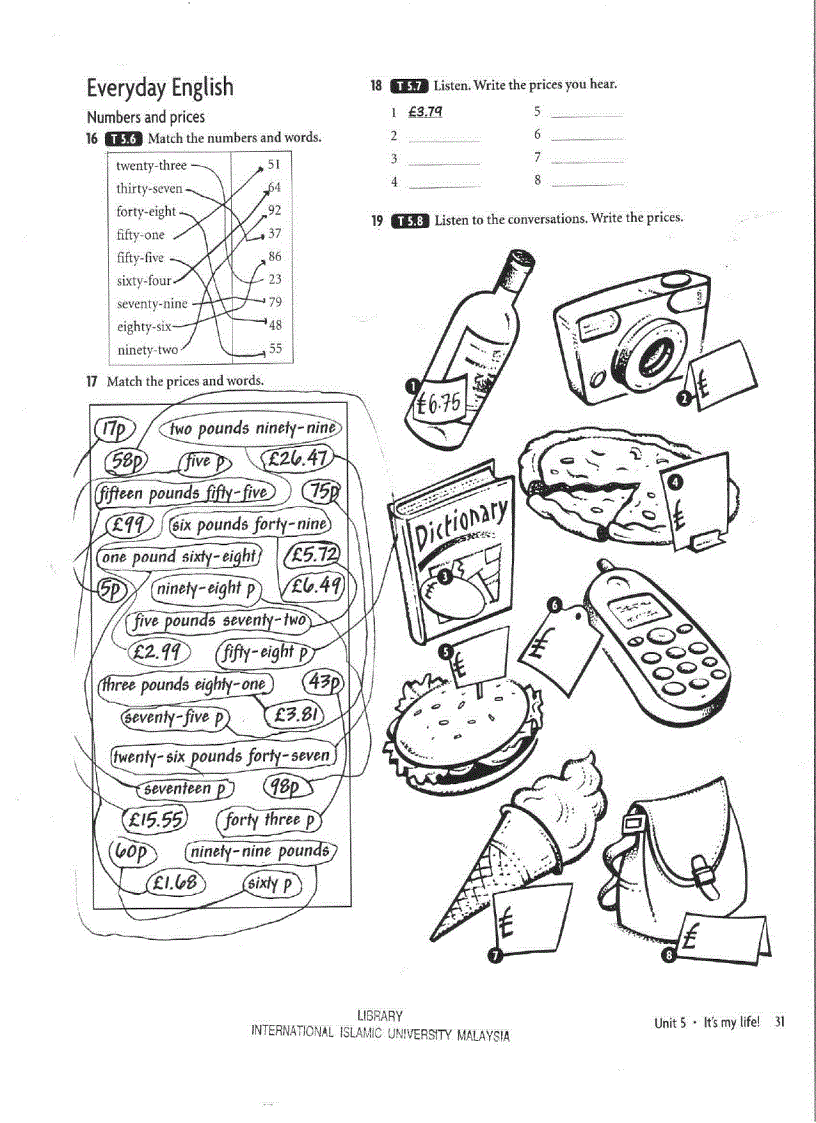 Everyday English
Numbers and prices
16 T 5.6 Match the numbers and words.
twenty-three 51
thirty-seven 64
forty-eight 92
fifty-one 37
fifty-five 86
sixty-four 23
seventy-nine 79
eighty-six 48
ninety-two 55
17 Match the prices and words.
17p two pounds ninety-nine
58p five p £26.47
fifteen pounds fifty-five 75p
£99 six pounds forty-nine
one pound sixty-eight £5.72
5p ninety-eight p £6.49
five pounds seventy-two
£2.99 fifty-eight p
three pounds eighty-one 43p
seventy-five p £3.81
twenty-six pounds forty-seven
seventeen p 98p
£15.55 forty three p
60p ninety-nine pounds
£1.68 sixty p
18 T 5.7 Listen. Write the prices you hear.
1 £3.79 5
2 6
3 7
4 8
19 T 5.8 Listen to the conversations. Write the prices.
1 £6.75
2 £
Dictionary
3
4 £
5 £
6 £
7 £
8 £
LIBRARY
INTERNATIONAL ISLAMIC UNIVERSITY MALAYSIA
Unit 5 • It's my life! 31